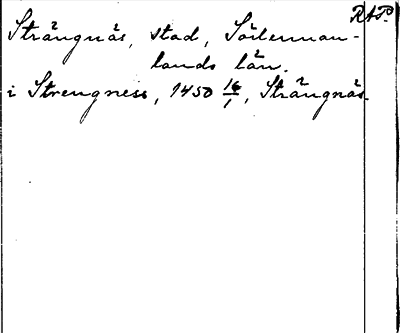 RAP.
Strängnäs, stad, Söderman-
lands län.
i Strengness, 1450 16/1, Strängnäs.